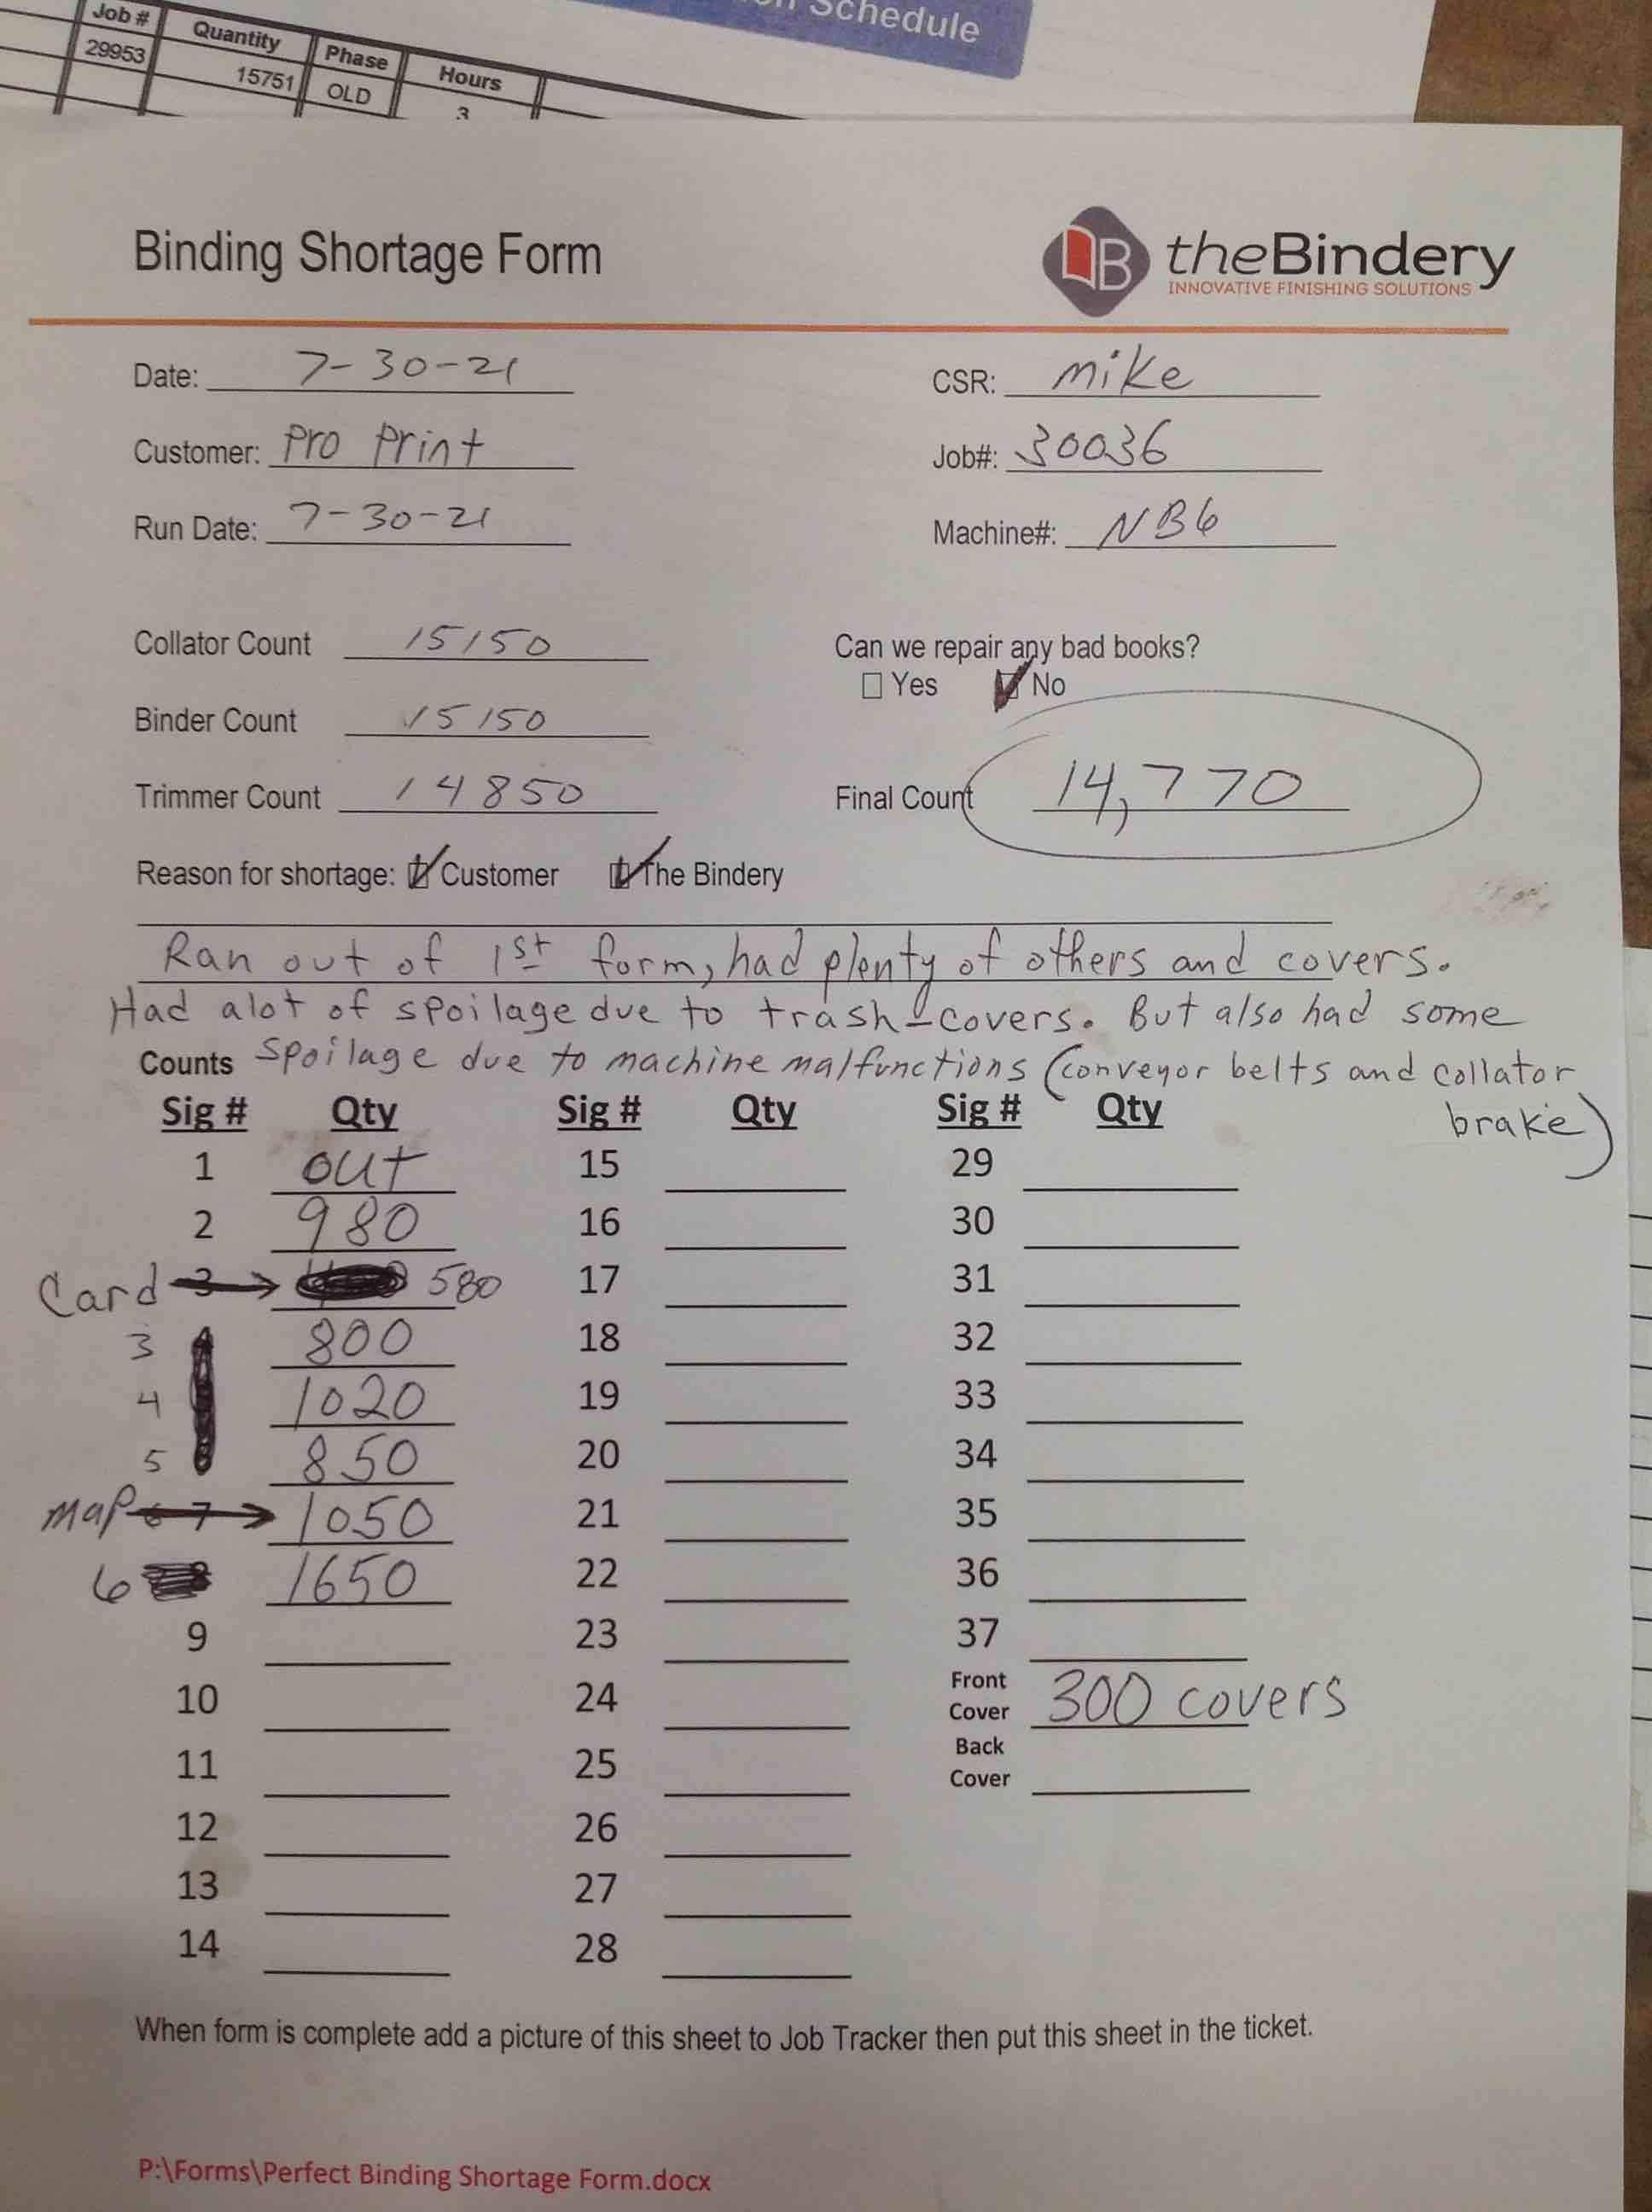 Schedule
Job # Quantity Phase Hours
29953 15751 OLD 3
Binding Shortage Form
B theBindery
INNOVATIVE FINISHING SOLUTIONS
Date: 7-30-21 CSR: mike
Customer: Pro Print Job#: 30036
Run Date: 7-30-21 Machine#: NB6
Collator Count 15150 Can we repair any bad books?
Yes No
Binder Count 15150
Trimmer Count 14850 Final Count 14,770
Reason for shortage: Customer The Bindery
Ran out of 1st form, had plenty of others and covers.
Had alot of spoilage due to trash-covers. But also had some
Counts Spoilage due to machine malfunctions (conveyor belts and collator
brake)
Sig # Qty Sig # Qty Sig # Qty
1 out 15 29
2 980 16 30
Card 3 580 17 31
3 800 18 32
4 1020 19 33
5 850 20 34
map 6 7 1050 21 35
6 1650 22 36
9 23 37
10 24 Front Cover 300 covers
11 25 Back Cover
12 26
13 27
14 28
When form is complete add a picture of this sheet to Job Tracker then put this sheet in the ticket.
P:\Forms\Perfect Binding Shortage Form.docx